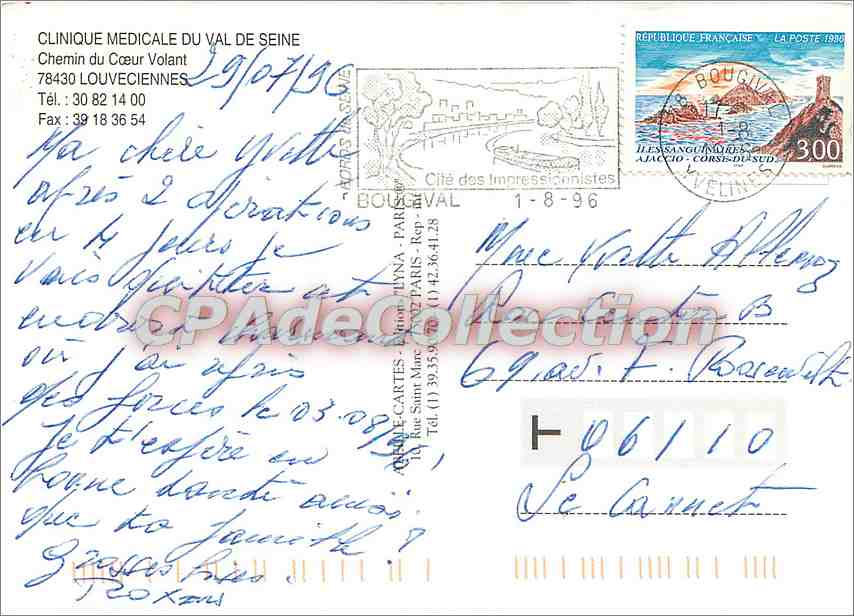 CLINIQUE MEDICALE DU VAL DE SEINE
Chemin du Cœur Volant
78430 LOUVECIENNES
Tél. : 30 82 14 00
Fax : 39 18 36 54
29/07/96
Ma chère Yvette
après 2 opérations
en 4 jours je
vais quitter cet
endroit
où j'ai repris
des forces le 03.08/96,
Je t'espère en
bonne santé ainsi
que ta famille !
Grosses bises.
BORDS DE SEINE
Cité des Impressionnistes
BOUGIVAL 1-8-96
RÉPUBLIQUE FRANÇAISE LA POSTE 1996
ILES SANGUINAIRES
AJACCIO - CORSE-DU-SUD
3,00
78 BOUGIVAL
17
1-8
YVELINES
CPAdeCollection
Rue Saint Marc
PARIS - Rep
Tél. (1) 39.35.9 (1) 42.36.41.28
Mme Yvette
Centre B
69, av. F. Roosevelt
T 06110
Le Cannet